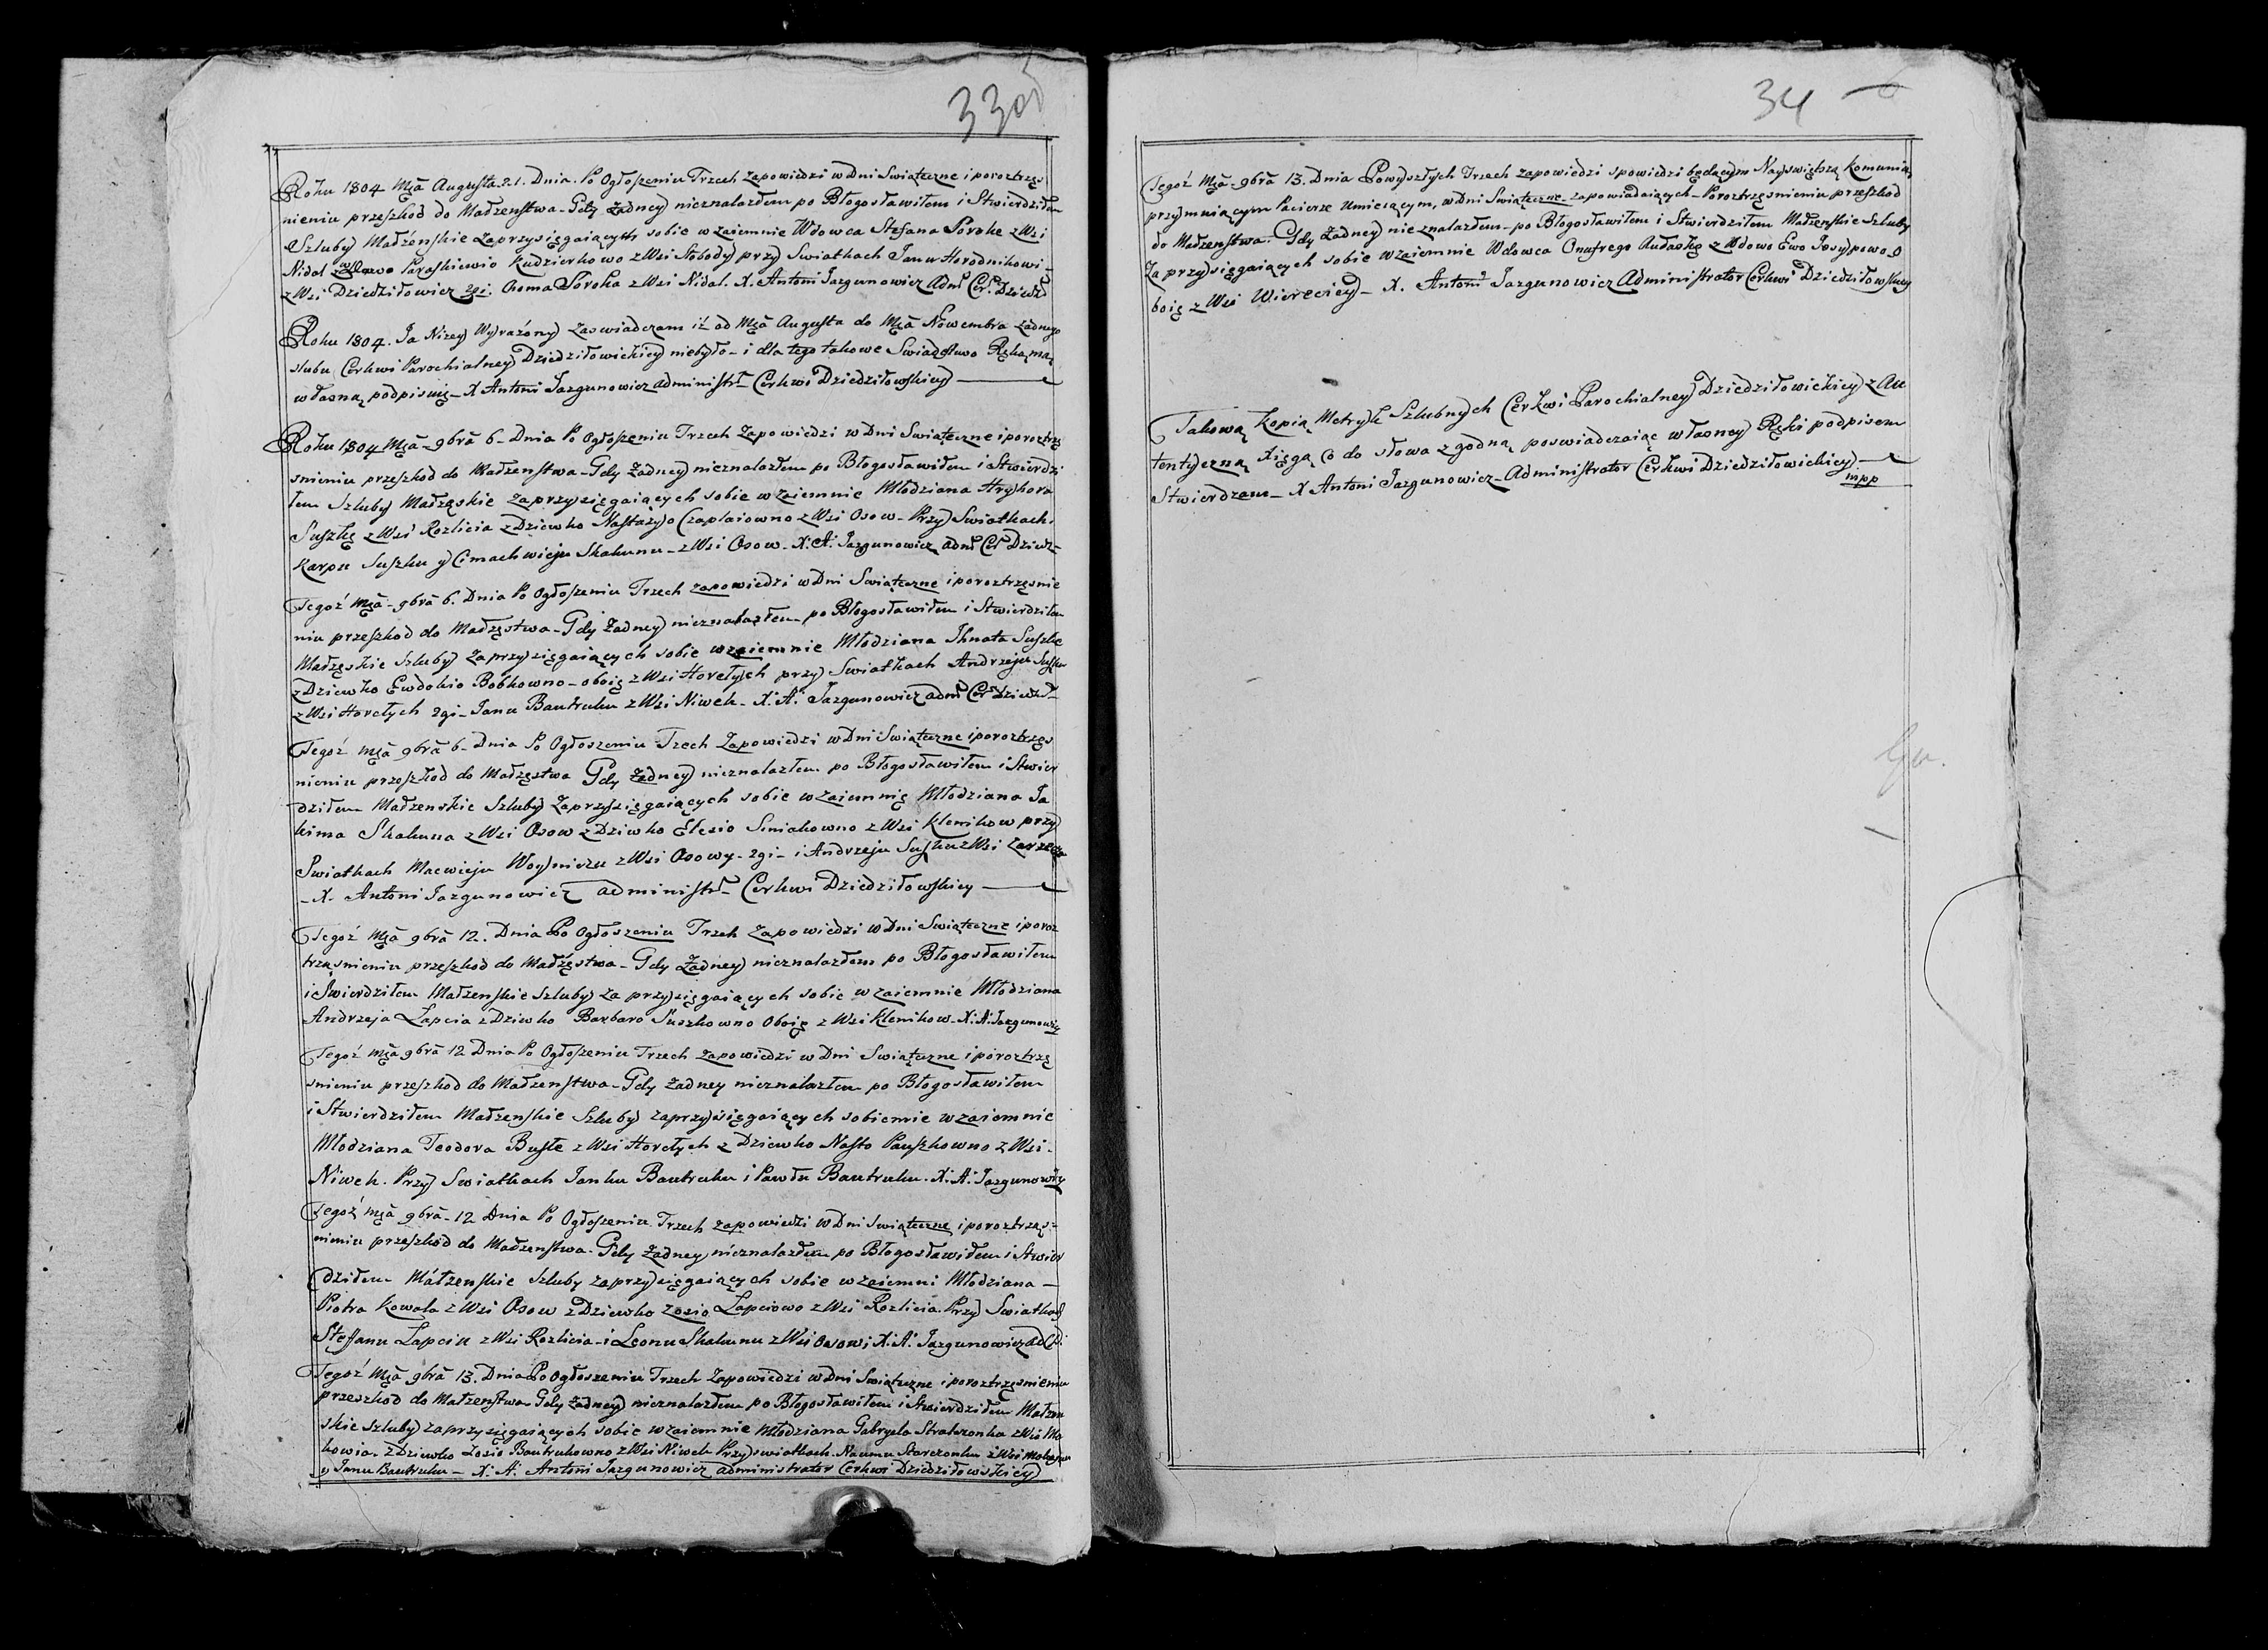 33об
Roku 1804 Mcā Augusta 21. Dnia. Po Ogłoszeniu Trzech Zapowiedzi w Dni Swiąteczne i poroztrzęs
nieniu przeszkod do Małzenstwa. Gdy Żadney nieznalazłem po Błogosławiłem i Stwierdziłem
Szluby Małżenskie Zaprzysięgaiących sobie wzaiemnie Wdowca Stefana Soroke z Wsi
Nidal z Wdowo Paraskiewio Kudzierkowo z Wsi Słobody przy Swiatkach Janu Horodnikowi
z Wsi Dziedziłowicz 2gi. Choma Soroka z Wsi Nidal. X. Antoni Jazgunowicz Adm Cer. Dziedz
Roku 1804. Ja Nizey Wyrażony Zaswiadczam iż od Mcā Augusta do Mcā Nowembra żadnego
slubu Cerkwi Parochialney Dziedziłowickiey niebyło - i dla tego takowe Swiadectwo Ręką mą
własną podpisuię - X Antoni Jazgunowicz administr Cerkwi Dziedziłowskiey
Roku 1804 Mcā - 9brā 6 - Dnia Po Ogłoszeniu Trzech Zapowiedzi w Dni Swiąteczne i poroztrzę
snieniu przeszkod do Małzenstwa - Gdy Żadney nieznalazłem po Błogosławiłem i Stwierdzi
łem Szluby Małzęskie zaprzysięgaiących sobie wzaiemnie Młodziana Hryhora
Suszkę z Wsi Rozlicia z Dziewko Nastazyo Czaplaiowno z Wsi Osow - Przy Swiatkach
Karpu Suszku y Cimachwieju Skakunu - z Wsi Osow - X. A. Jazgunowicz adm Cer Dziedz
Tegoż Mcā - 9brā 6. Dnia Po Ogłoszeniu Trzech Zapowiedzi w Dni Swiąteczne i poroztrzęsnie
niu przeszkod do Małzęstwa - Gdy Żadney nieznalazłem po Błogosławiłem i Stwierdziłem
Małzęskie Szluby Zaprzysięgaiących sobie wzaiemnie Młodziana Ihnata Suszke
z Dziewko Ewdokio Bobkowno - oboię z Wsi Horełych przy Swiatkach Andrzeju Suszku
z Wsi Horełych 2gi - Janu Bautruku z Wsi Niwek - X. A. Jazgunowicz adm Cer Dziedz
Tegoż Mcā 9brā 6 - Dnia Po Ogłoszeniu Trzech Zapowiedzi w Dni Swiąteczne i poroztrzęs
nieniu przeszkod do Małzęstwa Gdy Żadney nieznalazłem po Błogosławiłem i Stwier
dziłem Małzenskie Szluby Zaprzysięgaiących sobie wzaiemnię Młodziana Ja
kima Skakuna z Wsi Osow z Dziwko Elesio Siniakowno z Wsi Klenikow przy
Swiatkach Macwieju Woyniczu z Wsi Osowy - 2gi - i Andrzeju Suszku z Wsi
- X. Antoni Jazgunowicz administr Cerkwi Dziedziłowskiey
Tegoż Mcā 9brā 12. Dnia Po Ogłoszeniu Trzech Zapowiedzi w Dni Swiąteczne i poroz
trząsnieniu przeszkod do Małzęstwa - Gdy Żadney nieznalazłem po Błogosławiłem
i Stwierdziłem Małzenskie Szluby Zaprzysięgaiących sobie wzaiemnie Młodziana
Andrzeja Łapcia z Dziwko Barbaro Suszkowno Oboię z Wsi Klenikow - X. A. Jazgunowicz
Tegoż Mcā 9brā 12 Dnia Po Ogłoszeniu Trzech Zapowiedzi w Dni Swiąteczne i poroztrzę
snieniu przeszkod do Małzenstwa - Gdy Żadney nieznalazłem po Błogosławiłem
i Stwierdziłem Małzenskie Szluby zaprzysięgaiących sobiemie wzaiemnie
Młodziana Teodora Busłe z Wsi Horełych z Dziewko Nasto Pauszkowno z Wsi
Niwek. Przy Swiatkach Janku Bautruku i Pawłu Bautruku. X. A. Jazgunowicz
Tegoż Mcā 9brā - 12 Dnia Po Ogłoszeniu Trzech Zapowiedzi w Dni Swiąteczne i poroztrzęs
nieniu przeszkod do Małzenstwa - Gdy Żadney nieznalazłem po Błogosławiłem i Stwier
dziłem Małzenskie Szluby zaprzysięgaiących sobie wzaiemni Młodziana -
Piotra Kowala z Wsi Osow z Dziewko Zosio Łapciowo z Wsi Rozlicia. Przy Swiatkach
Steffanu Łapciu z Wsi Rozlicia - i Leonu Skakunu z Wsi Osow; X. A. Jazgunowicz
Tegoż Mcā 9brā 13. Dnia Po Ogłoszeniu Trzech Zapowiedzi w Dni Swiąteczne i poroztrzęsnieniu
przeszkod do Małzenstwa Gdy Żadney nieznalazłem po Błogosławiłem i Stwierdziłem Małzen
skie Szluby zaprzysięgaiących sobie wzaiemnie Młodziana Gabryela z Wsi Ma
kowia. z Dziewko Zosio Bautrukowno z Wsi Niwek Przy swiatkach Naumu Starczonku z Wsi
y Janu Bautruku - X. A. Antoni Jazgunowicz administrator Cerkwi Dziedziłowskiey
34
Tegoż Mcā - 9brā 13. Dnia Powyszłych Trzech zapowiedzi spowiedzi będącym Nayswiętszą Komunią
przymuiącym Pacierze Umieiącym, w Dni Swiąteczne zapowiadaiących - Poroztrzęsnieniu przeszkod
do Małzenstwa. Gdy Żadney nieznalazłem - po Błogosławiłem i Stwierdziłem Małzenskie Szluby
Zaprzysięgaiących sobie wzaiemnie Wdowca Onufrego z Wdowo Ewo Josypowo O
boię z Wsi Wiereciey - X. Antoni Jazgunowicz Administrator Cerkwi Dziedziłowskiey
Takową Kopią Metryk Szlubnych Cerkwi Parochialney Dziedziłowickiey z Au
tentyczną Xięgą Co do słowa zgodną poswiadczaiąc własney Ręki podpisem
Stwierdzam - X Antoni Jazgunowicz - Administrator Cerkwi Dziedziłowickiey
mpp